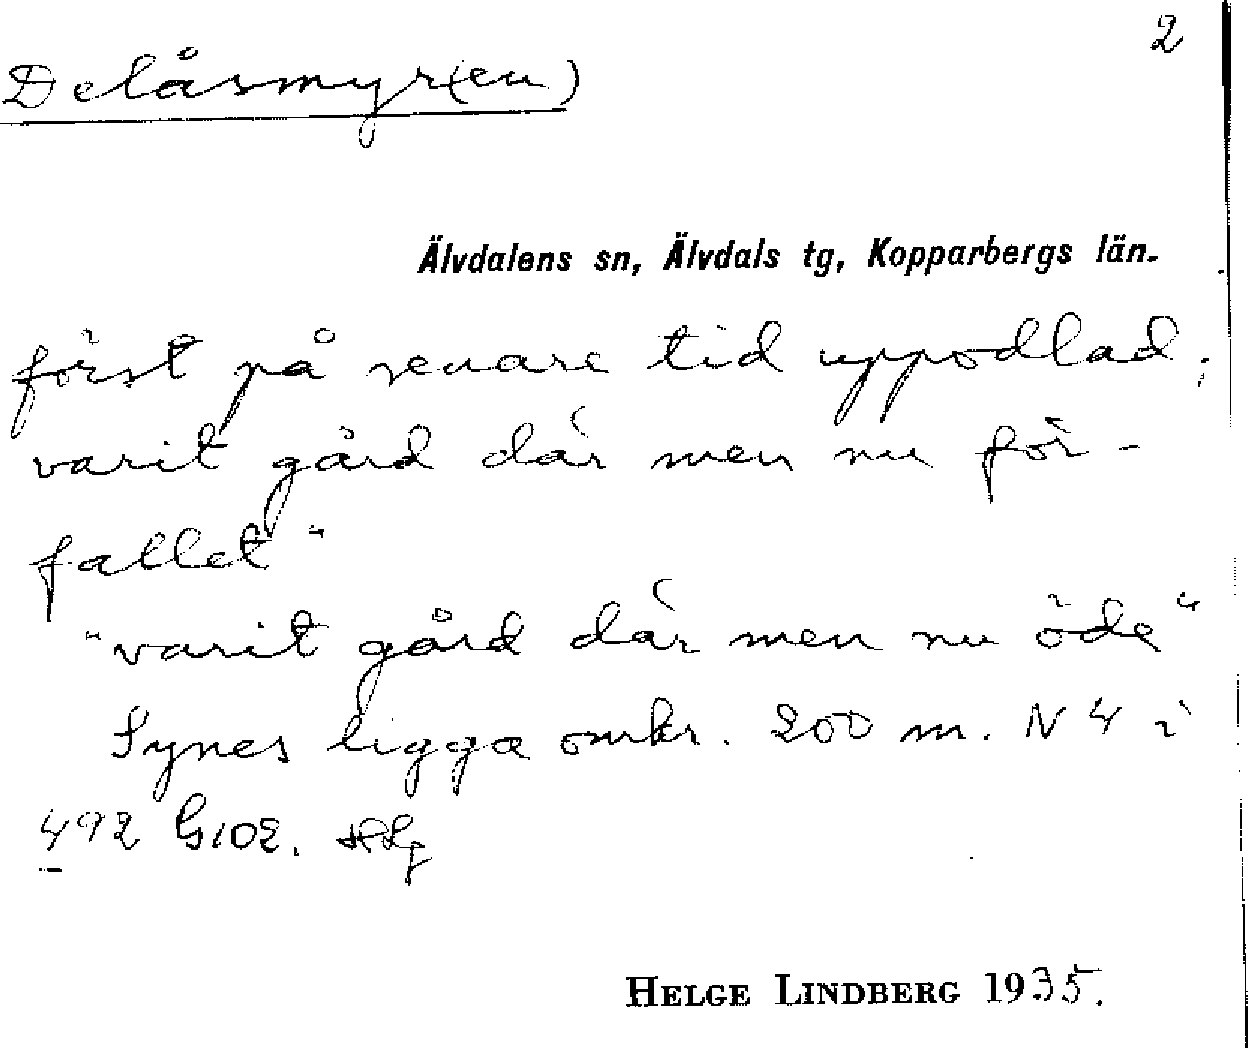 2
Delåsmyr(en)
Älvdalens sn, Älvdals tg, Kopparbergs län.
först på senare tid uppodlad;
varit gård där men nu för-
fallet"
"varit gård där men nu öde"
Synes ligga omkr. 200 m. N 4 i
492 G10E.
HELGE LINDBERG 1935.